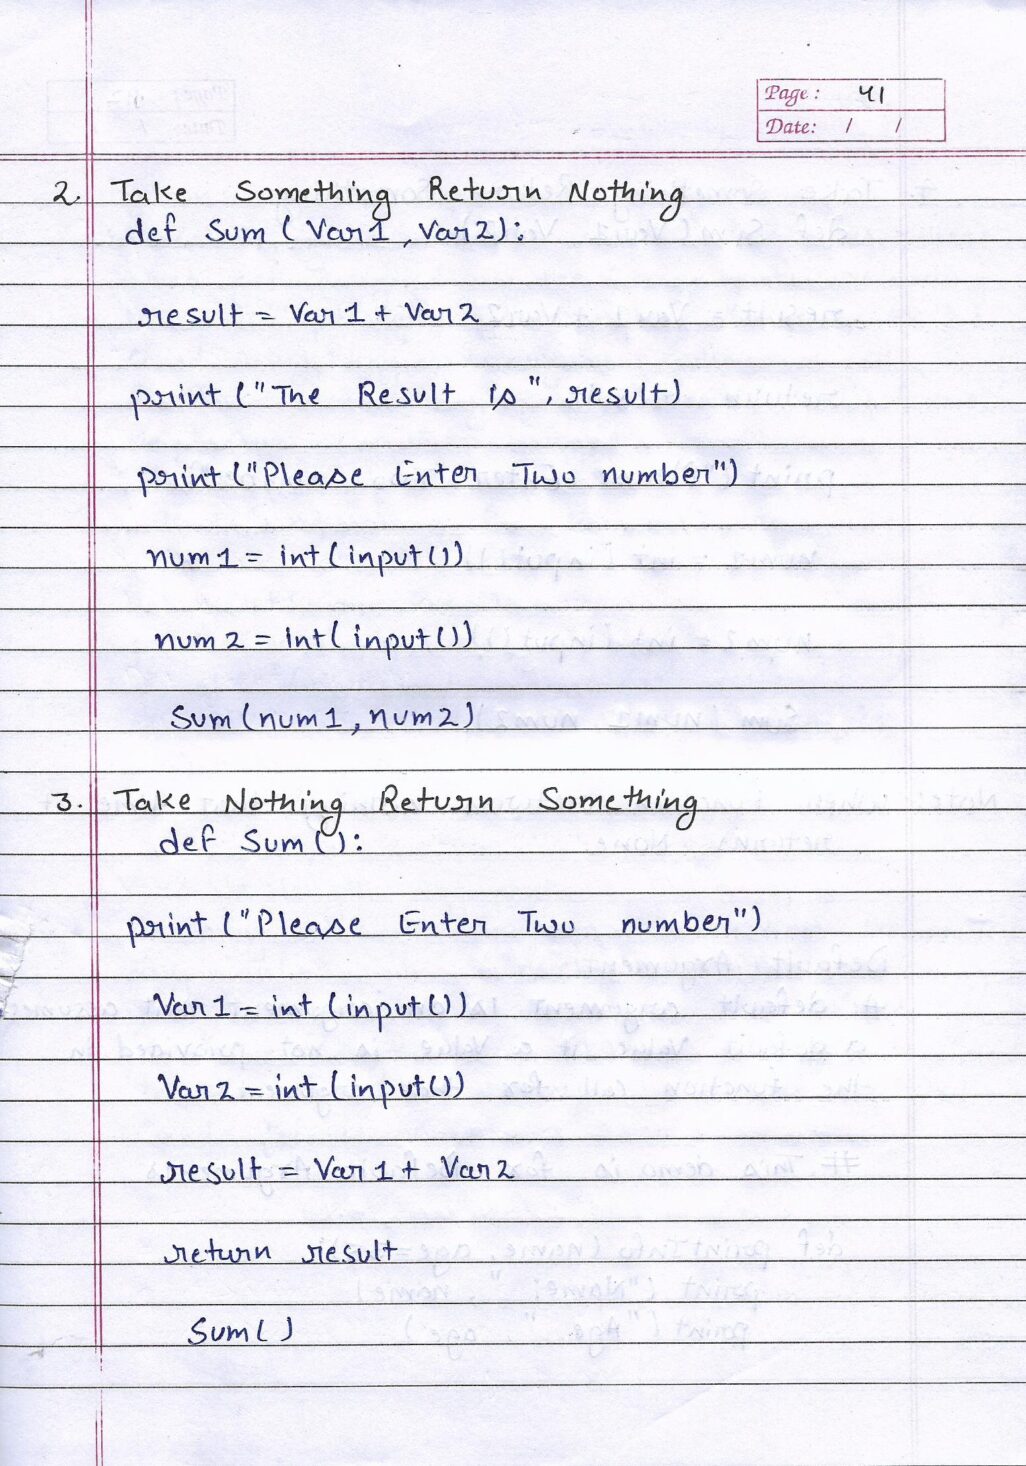 Page: 41
Date: / /
2. Take Something Return Nothing
def Sum (Var1, Var2):
result = Var1 + Var2
print ("The Result is", result)
print ("Please Enter Two number")
num1 = int (input())
num2 = int (input())
Sum (num1, num2)
3. Take Nothing Return Something
def Sum ():
print ("Please Enter Two number")
Var1 = int (input())
Var2 = int (input())
result = Var1 + Var2
return result
Sum ()